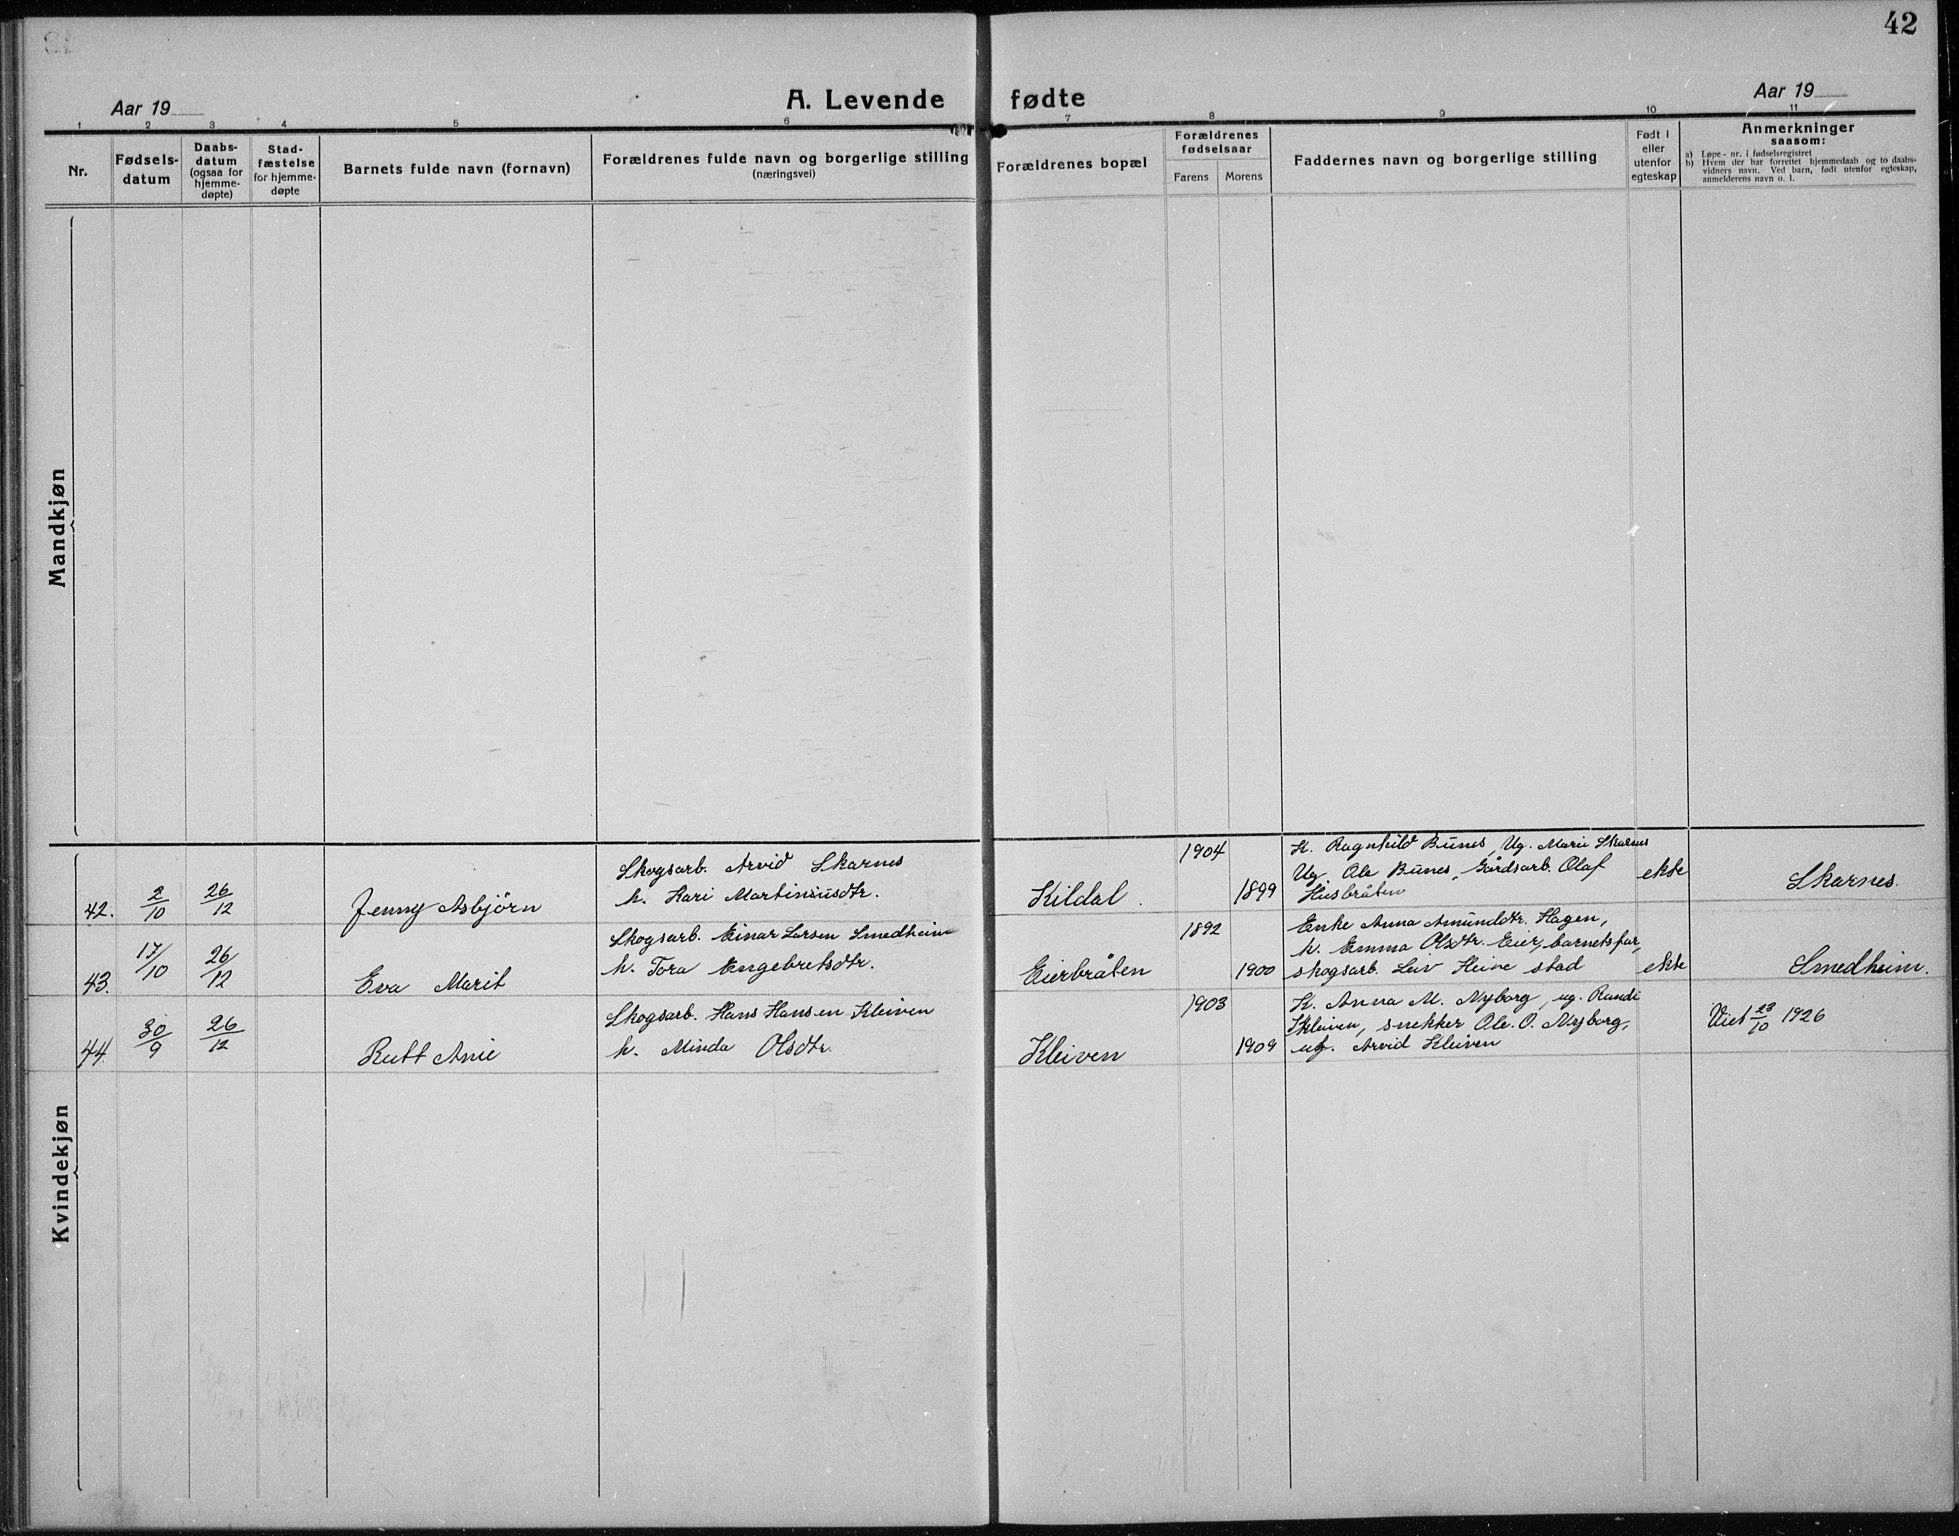 42
Aar 19
A. Levende fødte
Aar 19
1 2 3 4 5 6 7 8 9 10 11
Nr.
Fødsels-
datum
Daabs-
datum
(ogsaa for
hjemme-
døpte)
Stad-
fæstelse
for hjemme-
døpte
Barnets fulde navn (fornavn)
Forældrenes fulde navn og borgerlige stilling
(næringsvei)
Forældrenes bopæl
Forældrenes
fødselsaar
Farens Morens
Faddernes navn og borgerlige stilling
Født i
eller
utenfor
egteskap
Anmerkninger
saasom:
a) Løpe-nr. i fødselsregistret
b) Hvem der har forrettet hjemmedaab og to daabs-
vidners navn. Ved barn, født utenfor egteskap,
anmelderens navn o. l.
Mandkjøn
Kvindekjøn
42. 2/10 26/12 Jenny Asbjörn
Skogsarb. Arvid Skarnes
h. Kari Martiniusdtr.
Kildal.
1904
1899
K. Ragnhild Bunes, Ug. Marie Skarnes
Ug. Ole Bunes, Gårdsarb. Olaf
Husbråten
ekte
Skarnes.
43. 17/10 26/12 Eva Marit
Skogsarb. Einar Larsen Smedheim
h. Tora Engebretsdtr.
Eierbråten
1892
1900
Enke Anna Amunddtr. Hagen,
h. Emma Olsdtr. Eier, barnets far,
skogsarb. Leiv Heine stad
ekte
Smedheim.
44. 30/9 26/12 Rutt Anie
Skogsarb. Hans Hansen Kleiven
h. Minda Olsdtr.
Kleiven
1903
1909
K. Anna M. Nyborg, ug. Randi
Kleiven, snekker Ole. O. Nyborg,
ug. Arvid Kleiven
Viet 23/10 1926